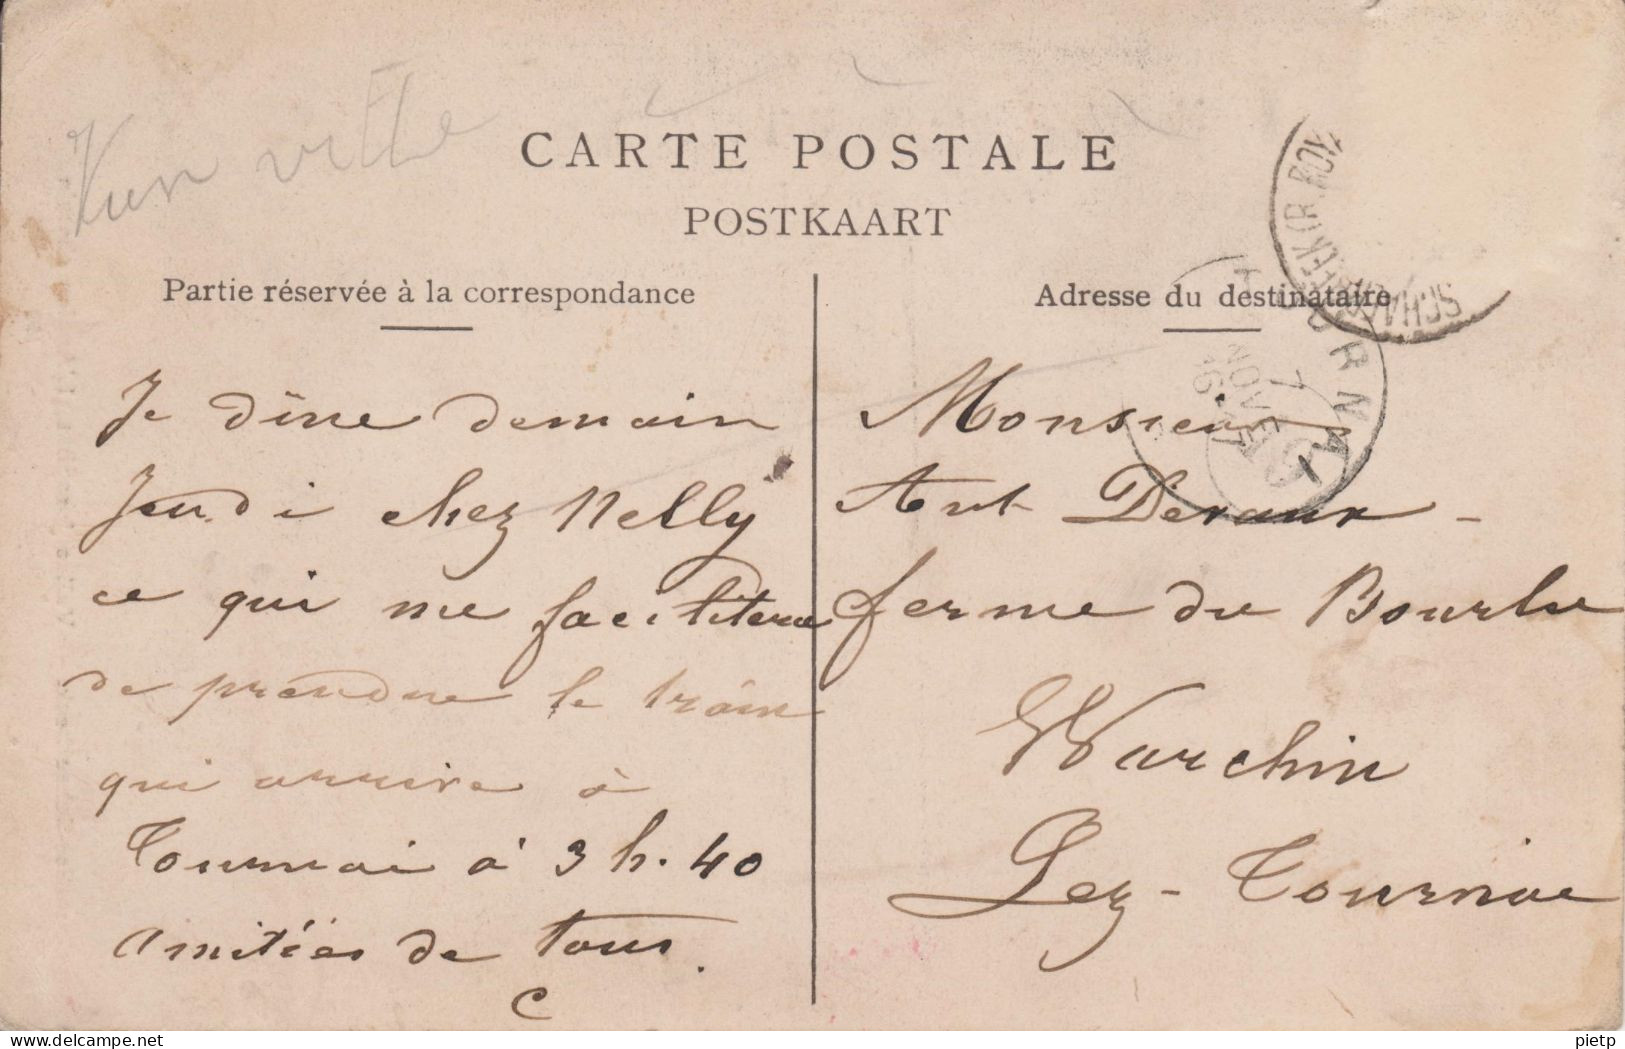 CARTE POSTALE
POSTKAART
Partie réservée à la correspondance
Adresse du destinataire
Je dîne demain
Jeudi chez Nelly
ce qui me facilitera
de prendre le train
qui arrive à
Tournai à 3 h. 40
Amitiés de tous.
C
Monsieur
Ant Devaux -
ferme du
Warchin
Lez-Tournai
TOURNAI
7
NOVE
pietp